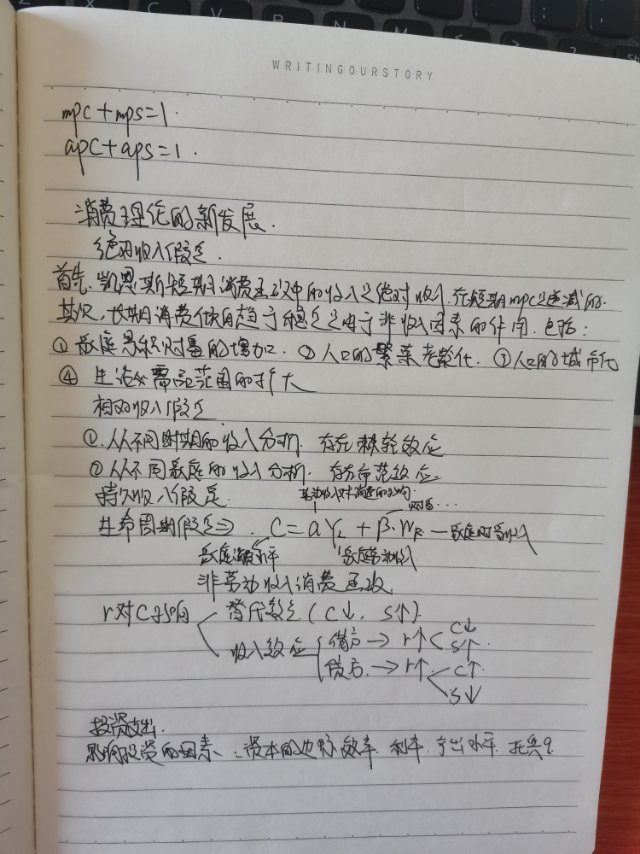 WRITINGOURSTORY
mpc + mps = 1.
apc + aps = 1.
消费理论的新发展.
绝对收入假定.
首先, 凯恩斯短期消费函数中的收入是绝对收入, 在短期mpc是递减的.
其次, 长期消费倾向趋于稳定是由于非收入因素的作用. 包括:
① 家庭累积财富的增加. ② 人口的繁荣老龄化. ③ 人口的城市化
④ 生活必需品范围的扩大
相对收入假定
①. 从不同时期的收入分析. 存在棘轮效应
② 从不同家庭的收入分析. 存在示范效应.
持久收入假定.
劳动收入对消费的影响
财富...
生命周期假定 ⇒ . C = a YL + β·WR — 家庭财富收入
家庭消费水平 家庭劳动收入
非劳动收入消费函数
r对C影响 替代效应 (C↓, S↑).
收入效应 借方 → r↑ C↓ S↑
贷方. → r↑ C↑ S↓
投资支出.
影响投资的因素: 资本的边际效率. 利率. 产出水平.